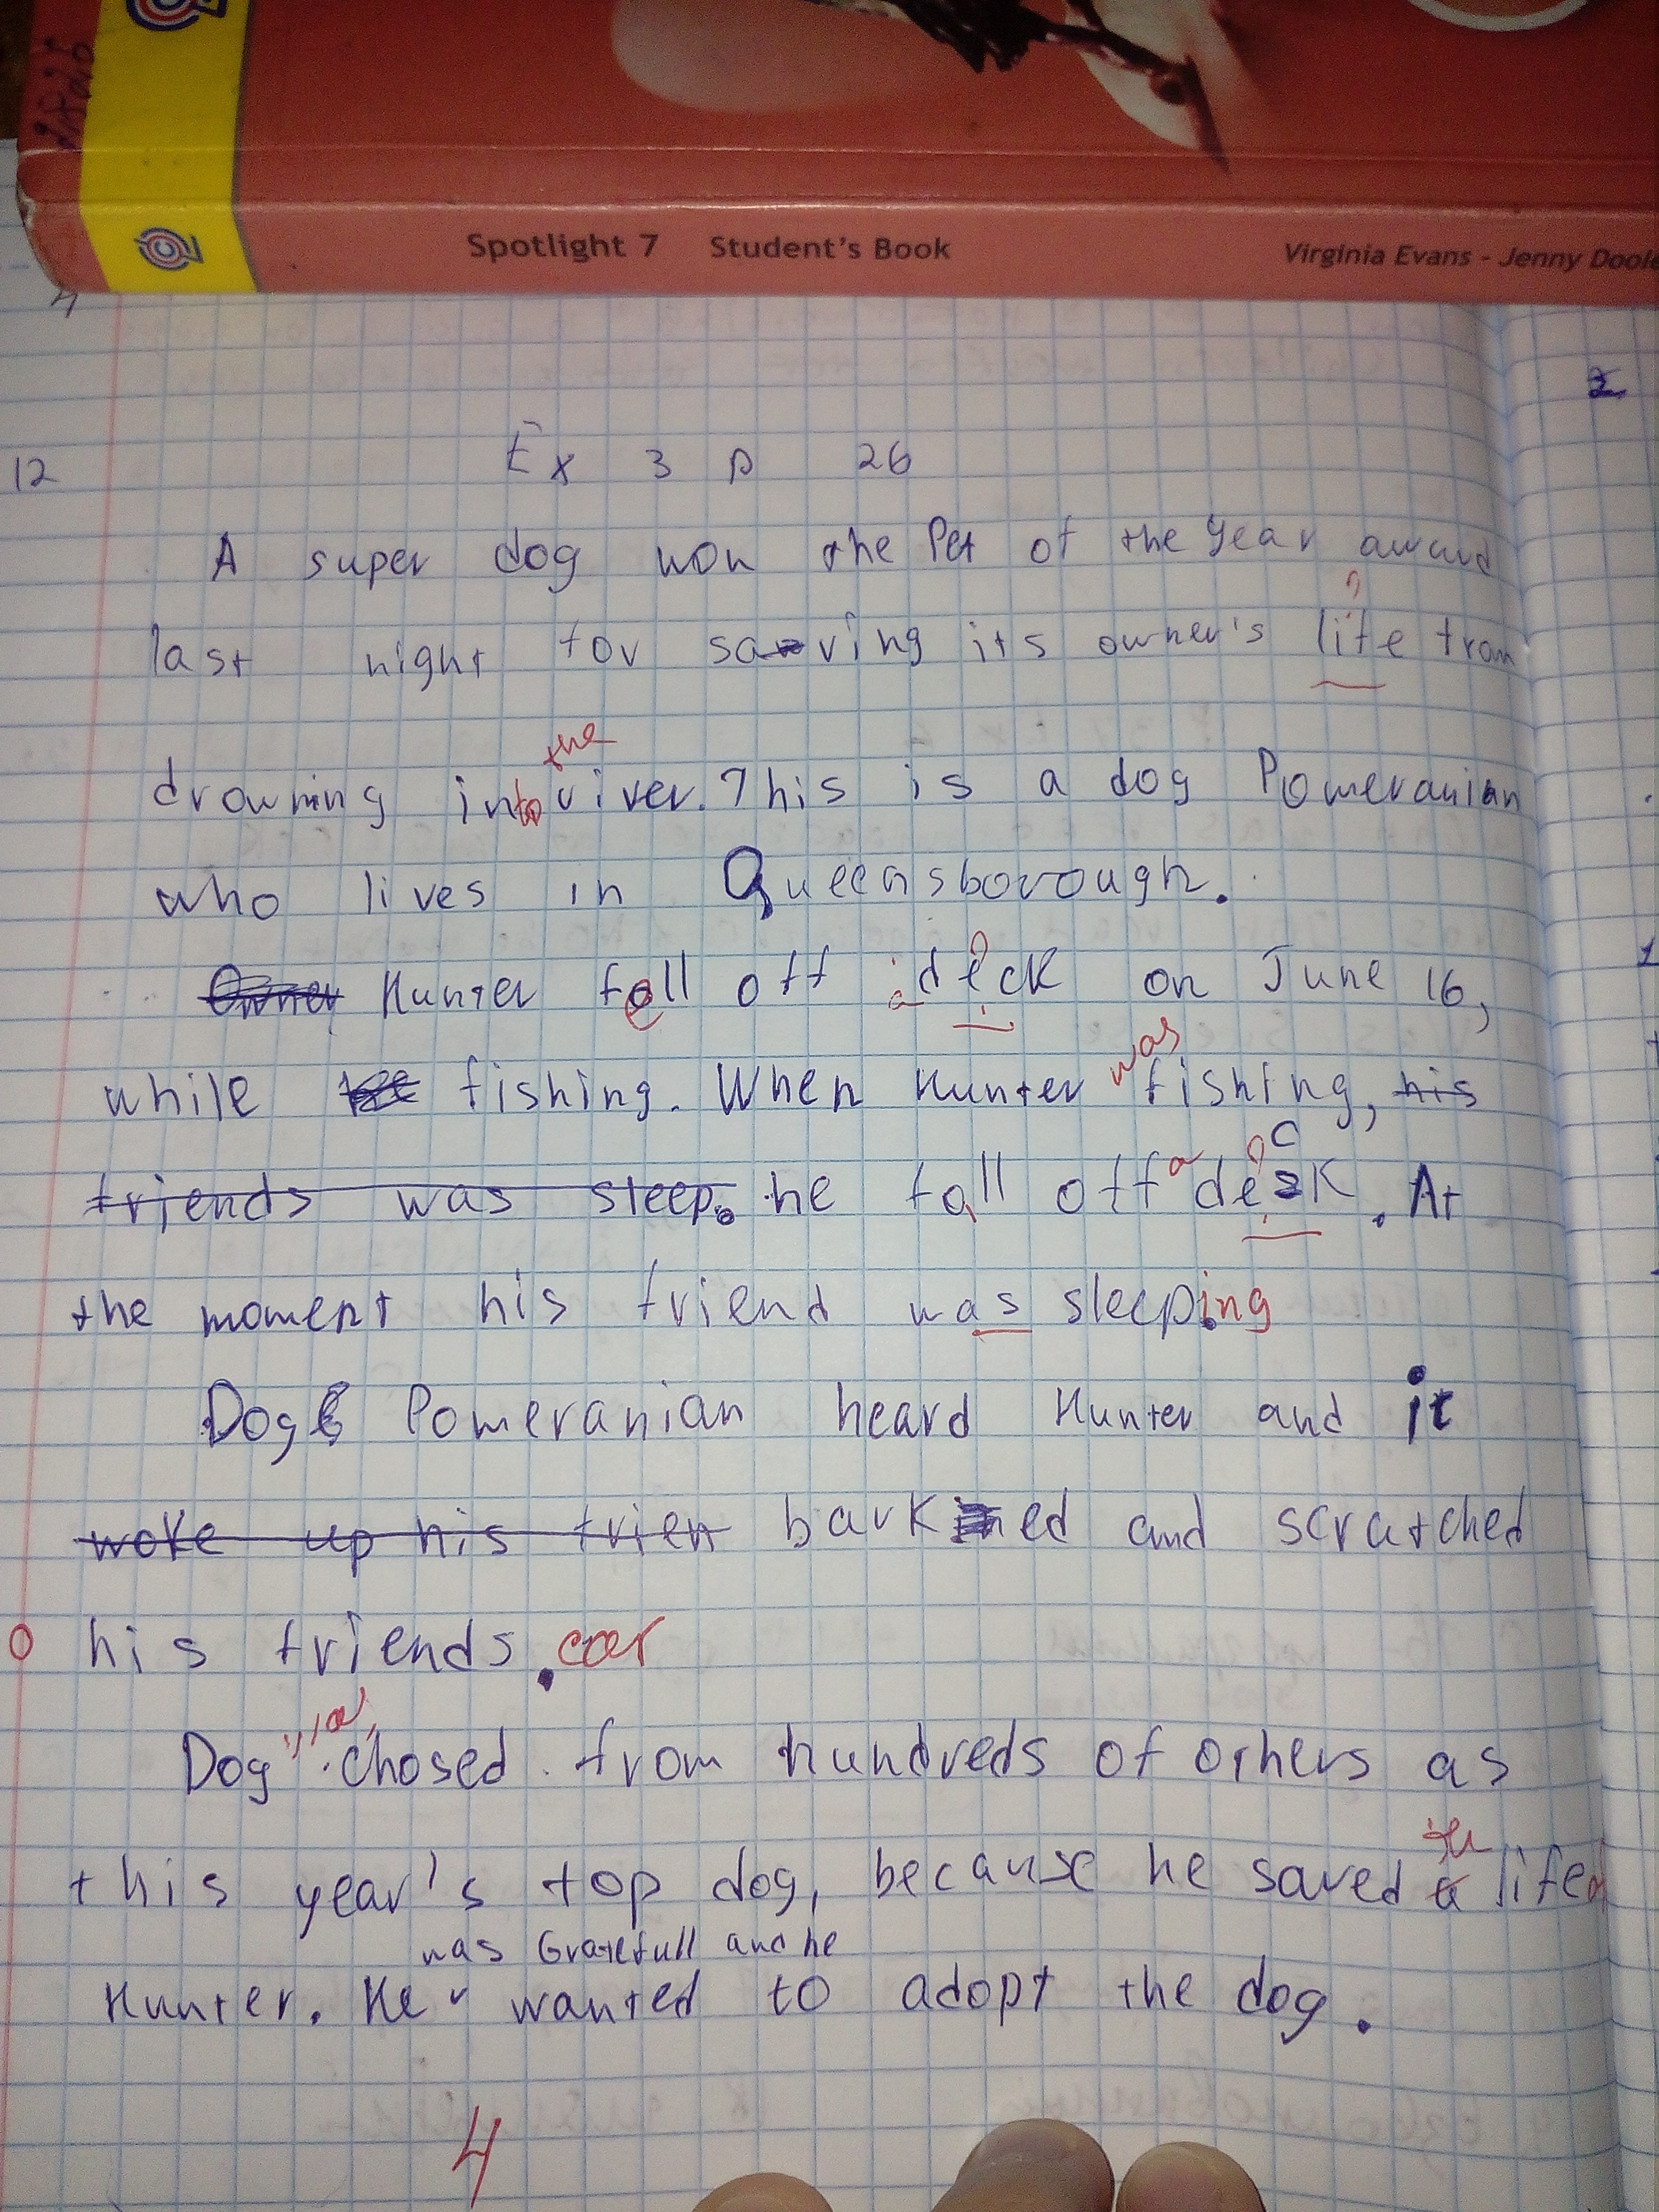 Spotlight 7 Student's Book Virginia Evans - Jenny Doole
12 Ex 3 p 26
A super dog won the Pet of the Year award
last night for saving its owner's life from
drowning into the river. This is a dog Pomeranian
who lives in Queensborough.
Owner Hunter fell off a deck on June 16,
while fishing. When Hunter was fishing, his
friends was sleep. he fall off a deck. At
the moment his friend was sleeping
Dog Pomeranian heard Hunter and it
woke up his frien barked and scratched
his friends. car
Dog chosed from hundreds of others as
this year's top dog, because he saved a life
was Gratefull and he
Hunter. He wanted to adopt the dog.
4